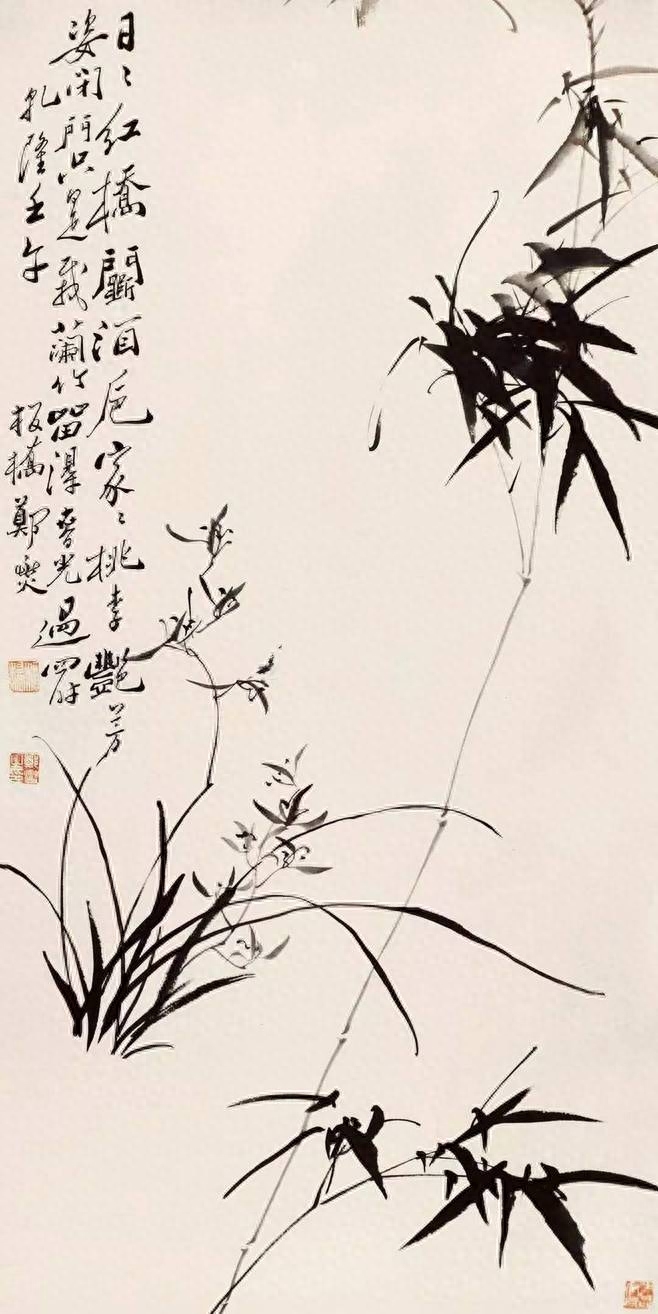 日〻紅橋鬬酒卮家〻桃李艷芳
姿閉門只是栽蘭竹留得春光過四時
乾隆壬午
板橋鄭燮